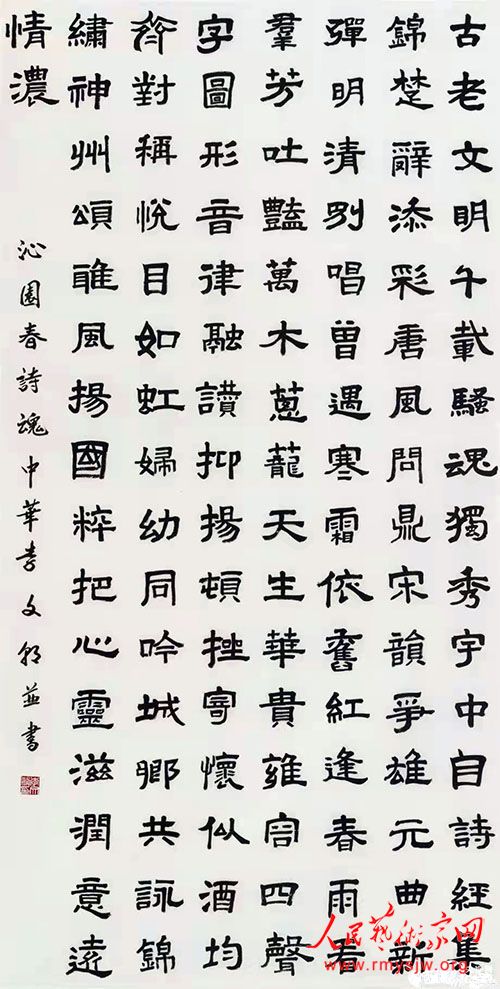 古老文明千載騷魂獨秀宇中自詩經集
錦楚辭添彩唐風問鼎宋韻爭雄元曲新
彈明清別唱曾遇寒霜依舊紅逢春雨看
羣芳吐豔萬木蔥蘢天生華貴雍容四聲
字圖形音律融讀抑揚頓挫寄懷似酒均
齊對稱悅目如虹婦幼同吟城鄉共詠錦
繡神州頌雅風揚國粹把心靈滋潤意遠
情濃
沁園春詩魂中華李文朝並書
人民藝術家网
www.rmysjw.org